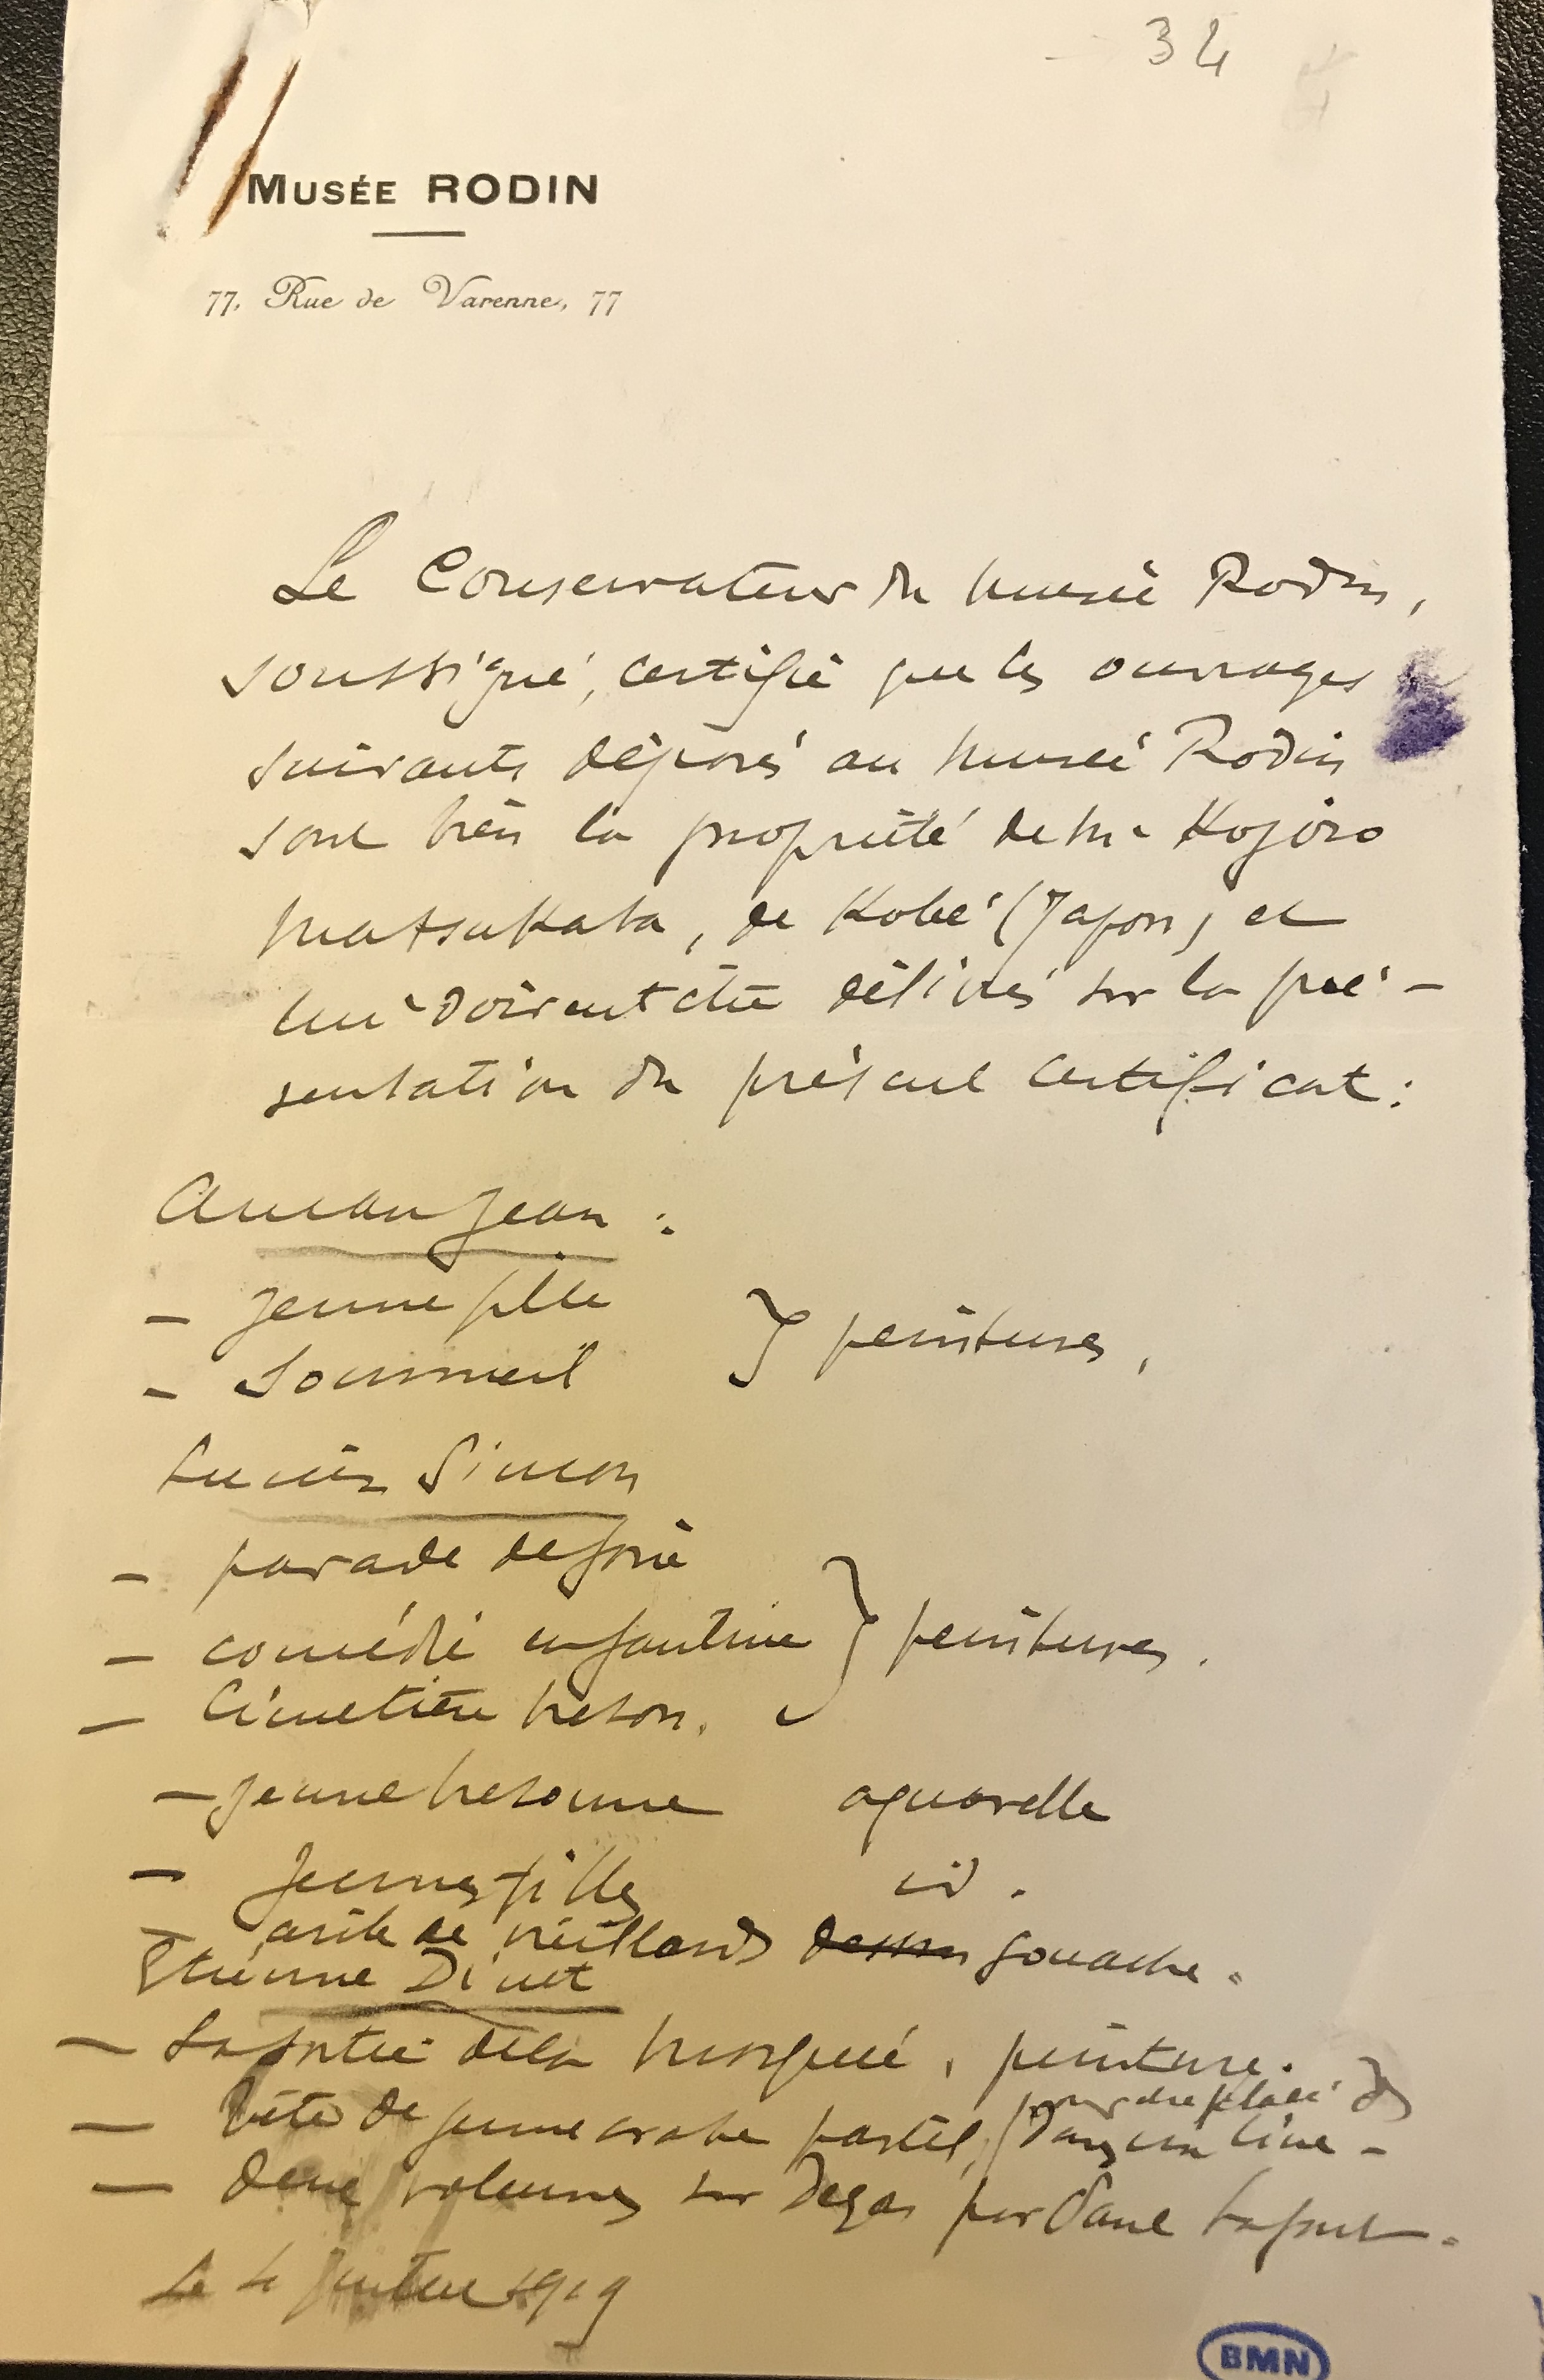 34
MUSÉE RODIN
77, Rue de Varenne, 77
Le Conservateur du Musée Rodin,
soussigné, certifie que les ouvrages
suivants déposés au Musée Rodin
sont bien la propriété de Mr Kojiro
Matsukata, de Kobé (Japon) et
lui doivent être délivrés sur la pré-
sentation du présent certificat :
Aman Jean :
- jeune fille
- Sommeil } peintures,
Lucien Simon
- parade de foire
- comédie enfantine } peintures.
- Cimetière breton.
- jeune bretonne aquarelle
- Jeunes filles id.
- asile de vieillards dessin gouache.
Etienne Dinet
- La sortie de la Mosquée, peinture.
- tête de jeune arabe pastel,
dans un livre -
- deux volumes sur Degas par Paul Lafond.
Le 4 juillet 1919
BMN